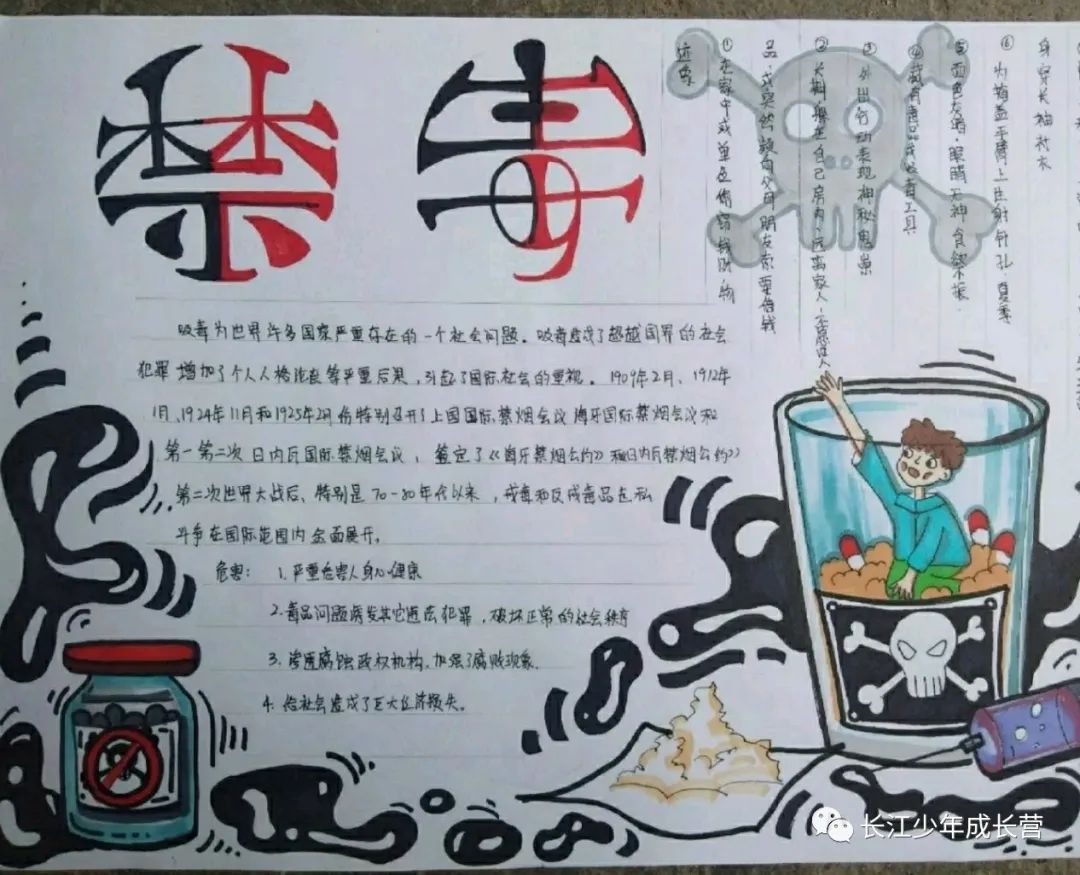 禁毒
吸毒为世界许多国家严重存在的一个社会问题。吸毒造成了超越国界的社会
犯罪 增加了个人人格沦丧等严重后果,引起了国际社会的重视。1909年2月、1912年
1月、1924年11月和1925年2月份特别召开了上国国际禁烟会议 海牙国际禁烟会议和
第一第二次日内瓦国际禁烟会议,签定了《海牙禁烟公约》和《日内瓦禁烟公约》
第二次世界大战后、特别是70-80年代以来,戒毒和反戒毒品走私
斗争在国际范围内全面展开。
危害: 1.严重危害人身心健康
2.毒品问题诱发其它违法犯罪,破坏正常的社会秩序
3.渗透腐蚀政权机构、加深了腐败现象.
4.给社会造成了巨大经济损失。
身穿长袖衬衣
⑥ 为掩盖手臂上注射针孔,夏季
⑤面色灰暗·眼睛无神 食欲不振
④藏有毒品及吸毒工具
③外出行动表现神秘鬼祟
②长期躲在自己房内、远离家人、
品,或突然频向父母朋友索要借钱
①在家中或单位偷窃钱财、物
迹象
长江少年成长营